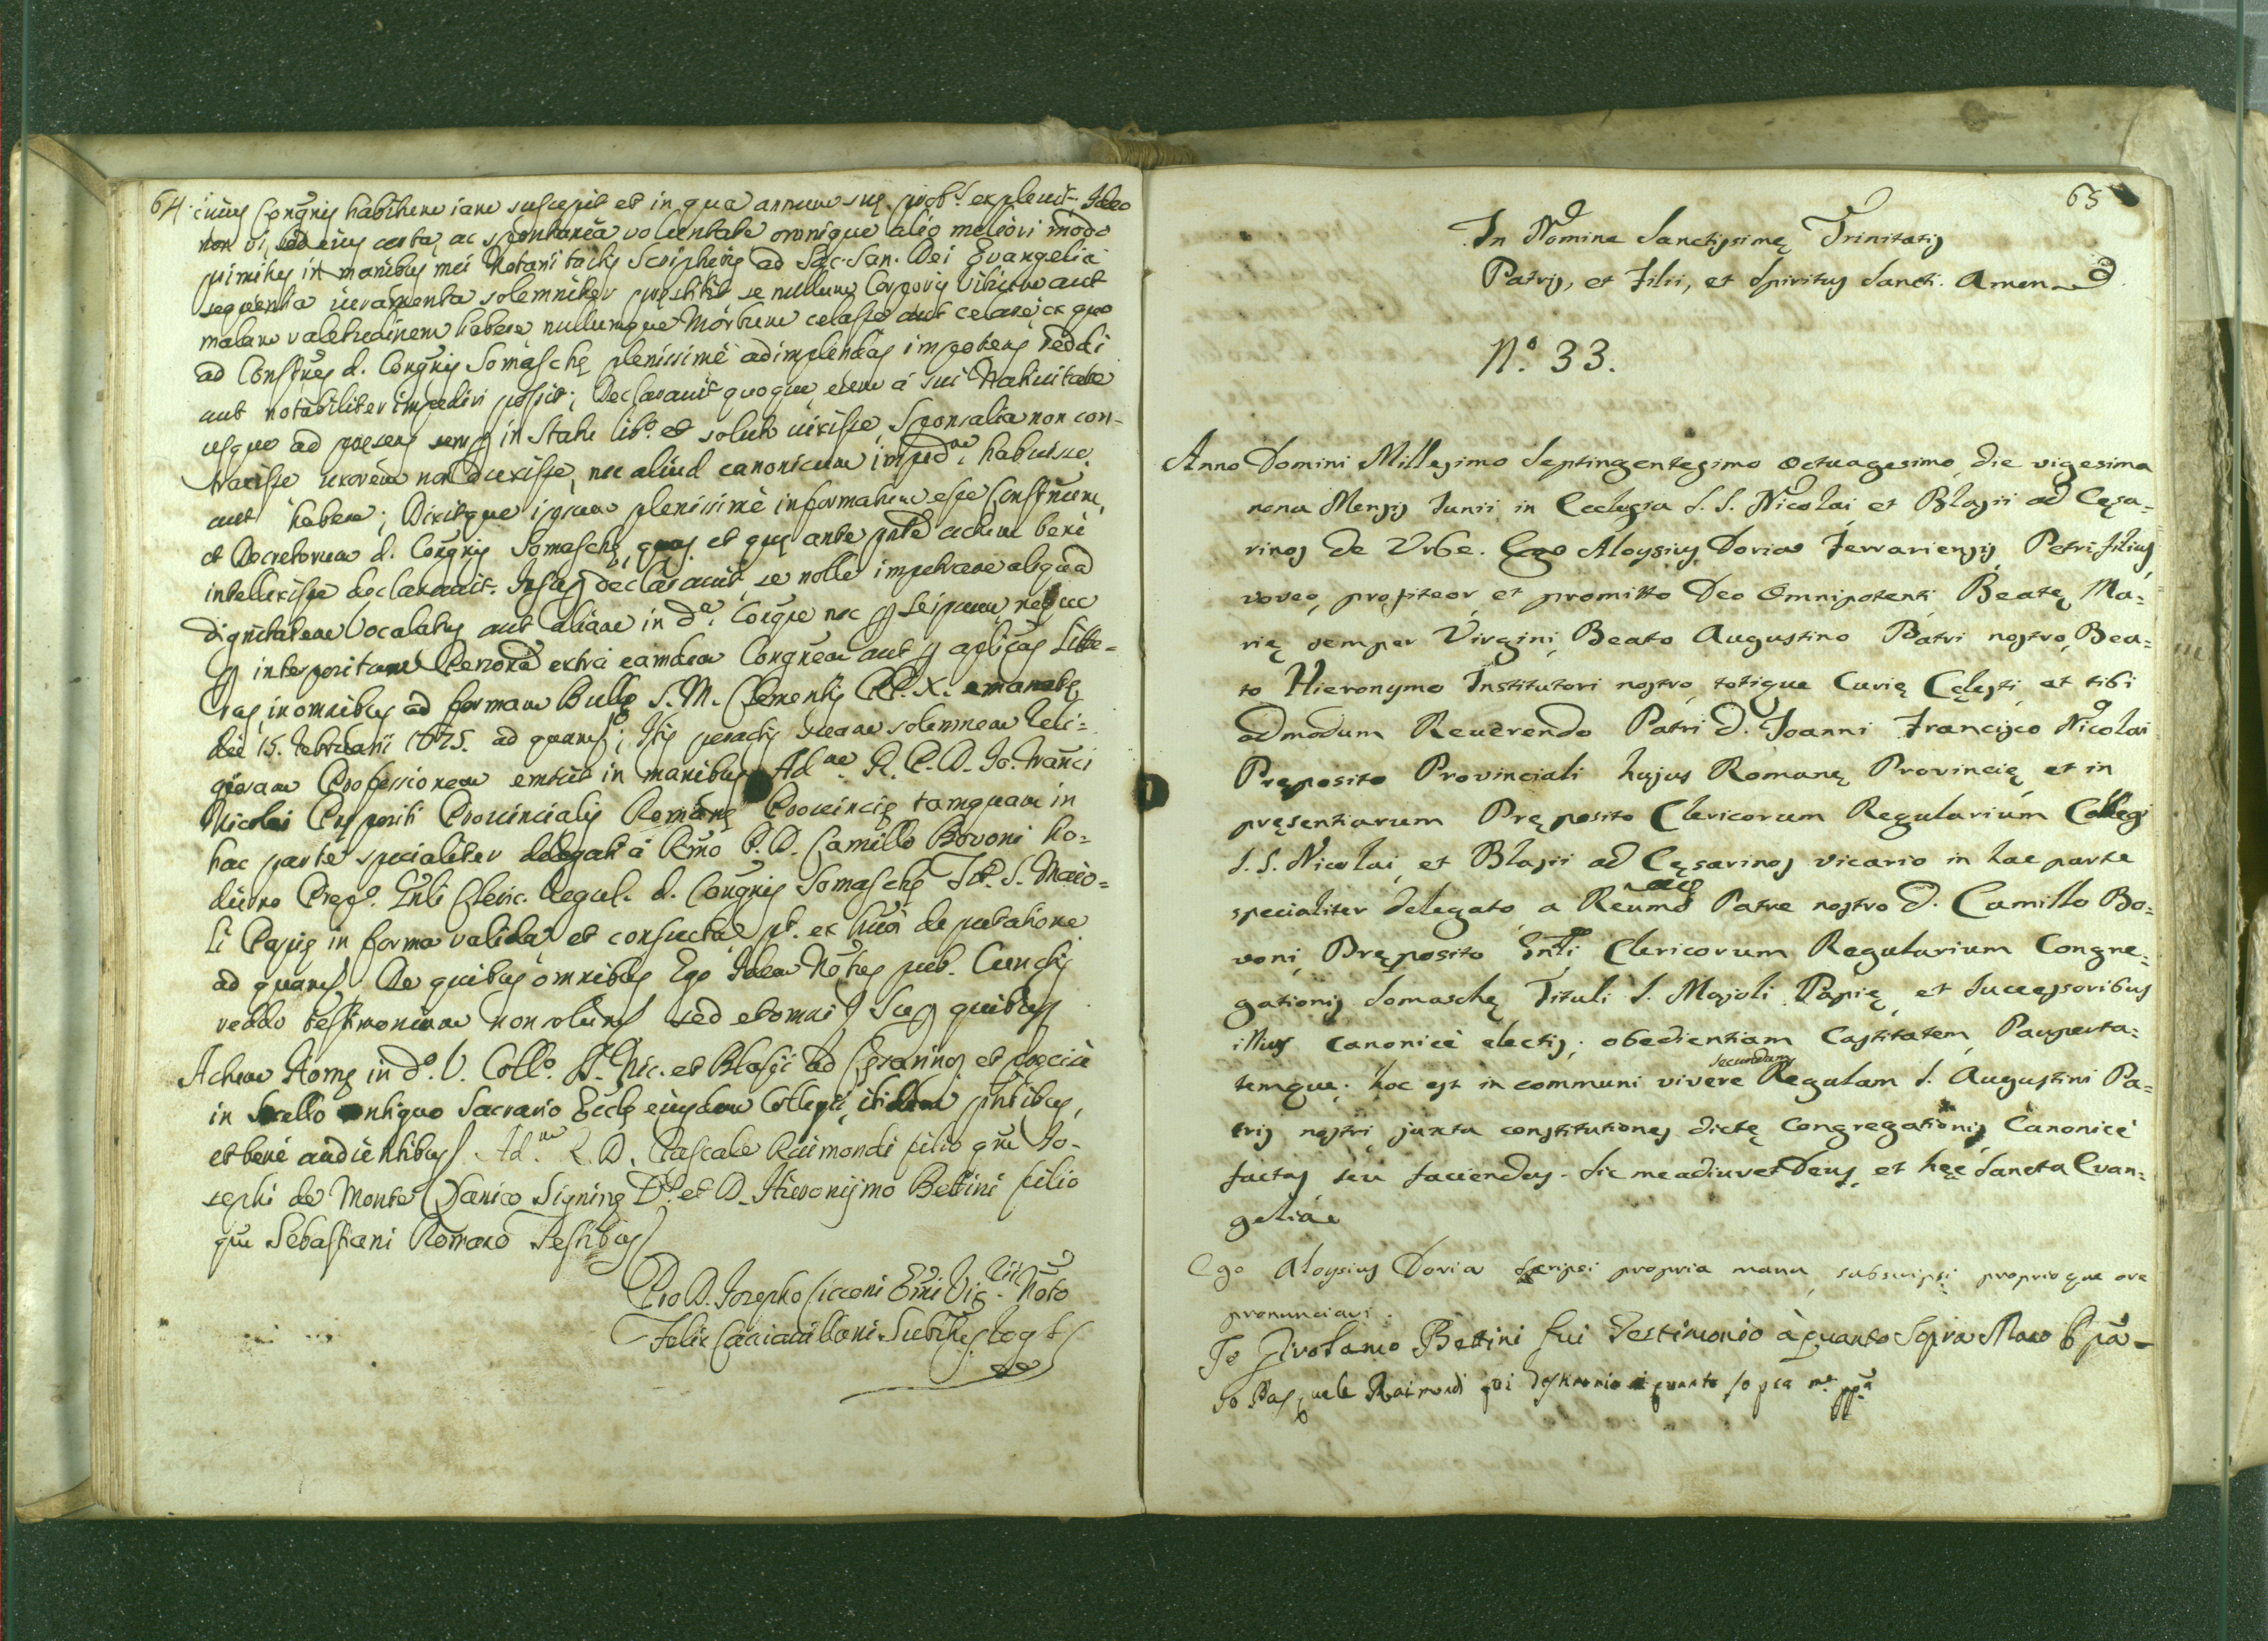 64. cuius Congñis habitum iam suscepit et in qua annum suę prob.s explevit. Ideo
non vi, sed eius certa, ac spontanea voluntate omnique alio meliori modo
primitus in manibus mei Notarii tactis Scripturis ad Sac. San. Dei Evangelia
sequentia iuramenta solemniter pręstitit se nullum Corporis vitium aut
malam valetudinem habere nullumque Morbum celasse aut celare, ex quo
ad Constñes d. Congñis Somaschę plenissimè adimplendas impotens reddi
aut notabiliter impediri possit; Declaravit quoque, eum à sui Nativitate
usque ad pręsens semp in Statu lib.o et soluto vixisse, Sponsalia non con-
traxisse uxorem non duxisse, nec aliud canonicum imped.m habuisse
aut habere; Dixitque ipsum plenissimè informatum esse Constñum,
et Decretorum d. Congñis Somaschę, quas et quę ante pñtē actum benè
intellexisse declaravit. Insup declaravit, se nolle impetrare aliquā
dignitatem Vocalatus aut aliam in d.a Congñe nec p seipsum neque
p interpositam Personā extra eamdem Congñem aut p aplicas Litte-
ras, in omnibus ad formam Bullę S. M. Clementis PP. X. emanatę
die 15. Februarii 1675. ad quam; Itis peractis suam solemnem Reli-
giosam Professionem emisit in manibus Ad.m R. P. D. Io. Franci
Nicolai Prępositi Provincialis Romanę Provincię tamquam in
hac parte specialiter delegati à Rmo P. D. Camillo Bovoni ho-
dierno Prep.o Gñli Cleric. Regul. d. Congñis Somaschę Tit. S. Maio-
li Papię in forma valida et consueta pt. ex sua deputatione
ad quam. De quibus omnibus Ego Idem Notus pub. Cunctis
reddo testimonium non solum sed et omni Sup quibus
Actum Romę in d.o V. Coll.o SS. Nic. et Blasii ad Cęsarinos et pręcisè
in Sacello antiquo Sacrario Ecclę eiusdem Collegii, ibidem pñtibus,
et benè audientibus Ad.m R. D. Pascale Raimondi filio qm Jo-
sephi de Monte Lanico Signinę D. et D. Hieronymo Bettini filio
qm Sebastiani Romano Testibus
Pro D. Josepho Cicconi Emi Vic. Noto
Felix Substus rogts
65
In Nomine Sanctissimę Trinitatis
Patris, et Filii, et Spiritus Sancti. Amen
N.o 33.
Anno Domini Millesimo Septingentesimo Octuagesimo, die vigesima
nona Mensis Iunii, in Ecclesia S. S. Nicolai, et Blasii ad Cęsa=
rinos de Urbe. Ego Aloysius Doria Ferrariensis, Petri filius,
voveo, profiteor, et promitto Deo Omnipotenti, Beatę Ma=
rię semper Virgini, Beato Augustino Patri nostro, Bea=
to Hieronymo Institutori nostro, totique Curię Cęlesti, et tibi
admodum Reverendo Patri D. Joanni Francisco Nicolai
Pręposito Provinciali hujus Romanę Provincię, et in
pręsentiarum Pręposito Clericorum Regularium Collegi
S. S. Nicolai, et Blasii ad Cęsarinos vicario in hac parte
specialiter delegato a Reumo Patre nostro D. Camillo Bo=
voni, Pręposito Gñli Clericorum Regularium Congre=
gationis Somaschę Tituli S. Majoli Papię, et Successoribus
illius canonicè electis; obedientiam Castitatem, Pauperta=
temque: hoc est in communi vivere secundum Regulam S. Augustini Pa=
tris nostri juxta constitutiones dictę Congregationis Canonicè
factas seu faciendas. Sic me adiuvet Deus, et hęc Sancta Evan=
gelia
Ego Aloysius Doria scripsi propria manu, subscripsi proprioque ore
pronunciavi.
Io Girolamo Bettini fui Testimonio à quanto Sopra Mano ppa
Io Pasquale Raimondi fui Testimonio a quanto sopra mo ppa